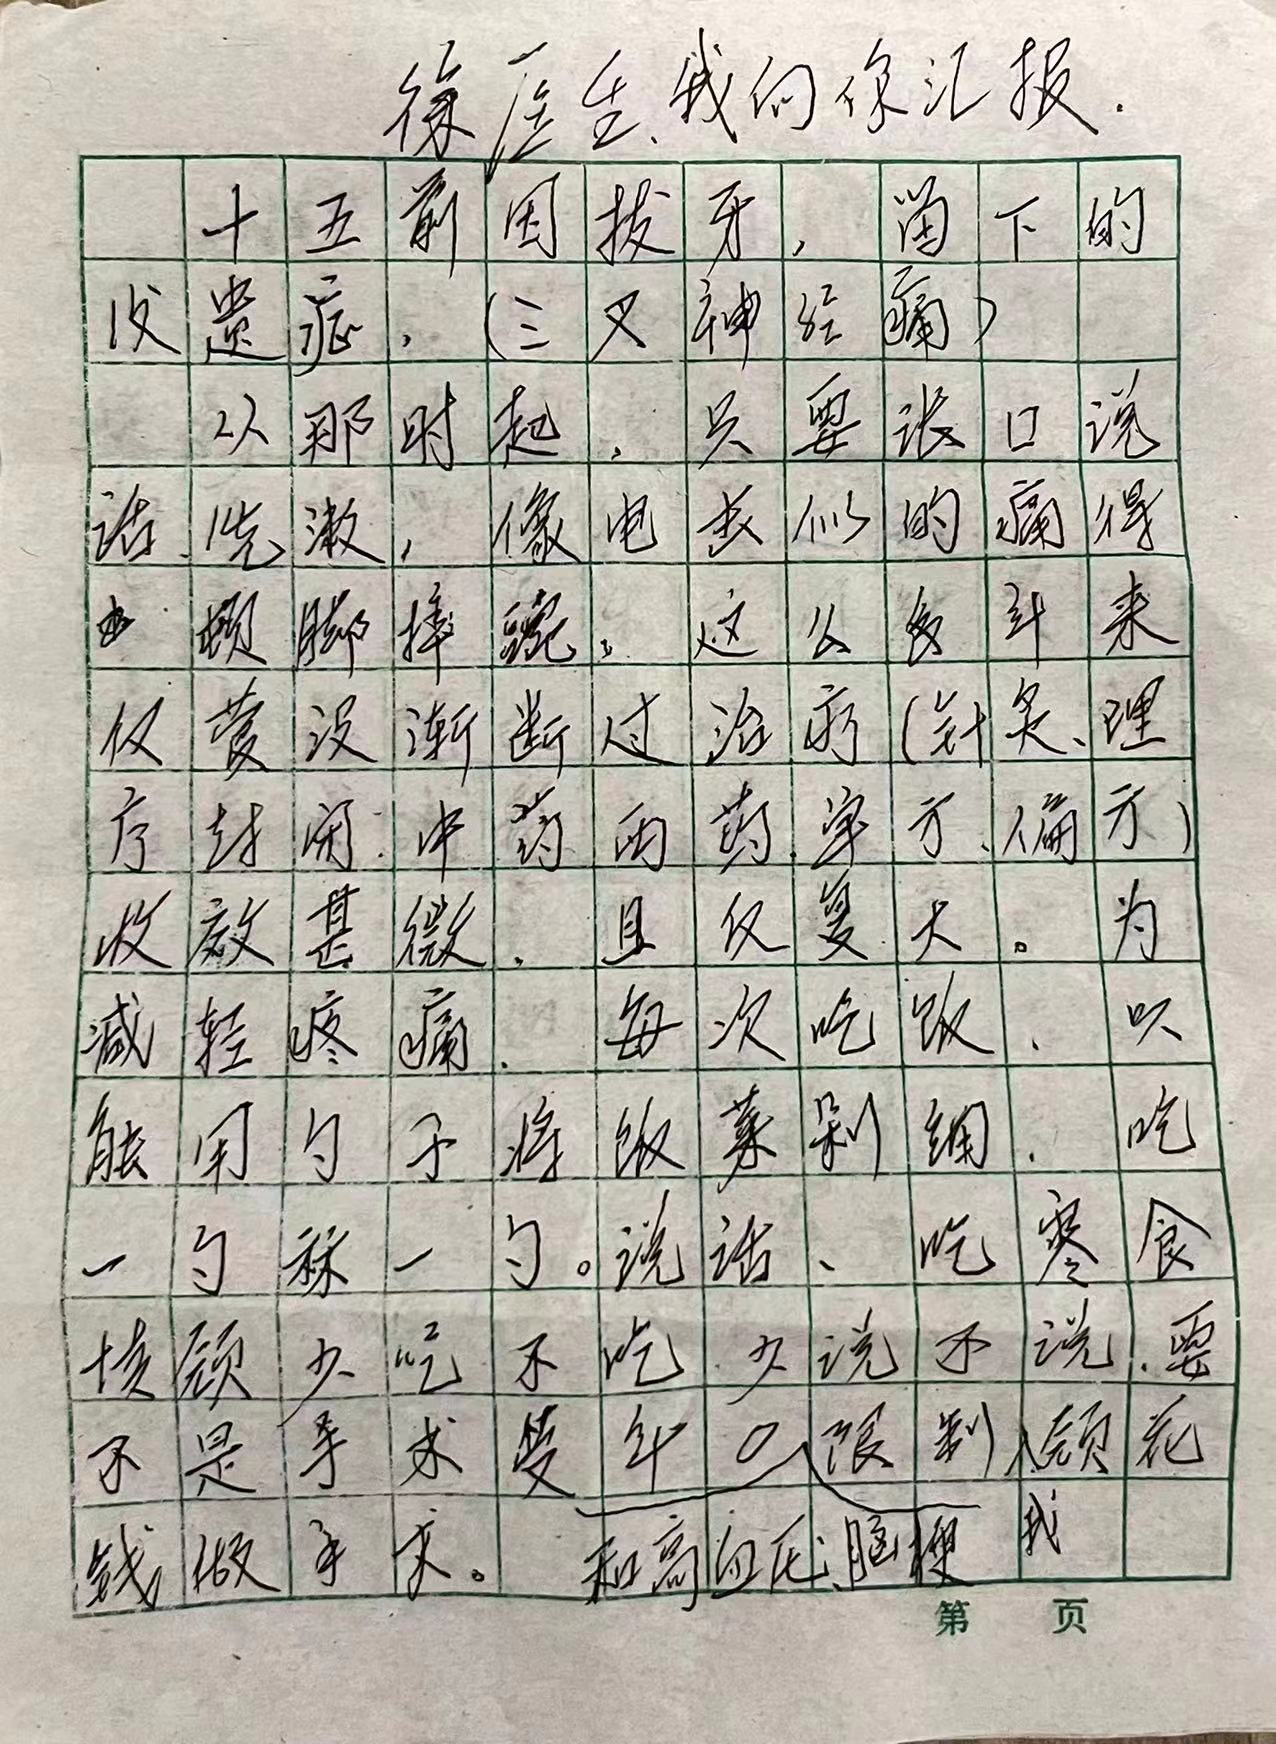 徐医生、我向你汇报.
十五前因拔牙,留下的
后遗症.(三叉神经痛)
从那时起,只要张口说
话、洗漱,像电击似的痛得
顿脚摔碗。这么多年来
仅管没渐断过治疗(针灸、理
疗封闭.中药西药.单方、偏方)
收效甚微.且反复大。为
减轻疼痛.每次吃饭、只
能用勺子将饭菜剁细.吃
一勺一勺。说话、吃寒食
情愿少吃不吃少说不说.要
不是手术受年〇限制,愿花
钱做手术。和高血压、脑梗 我
第 页